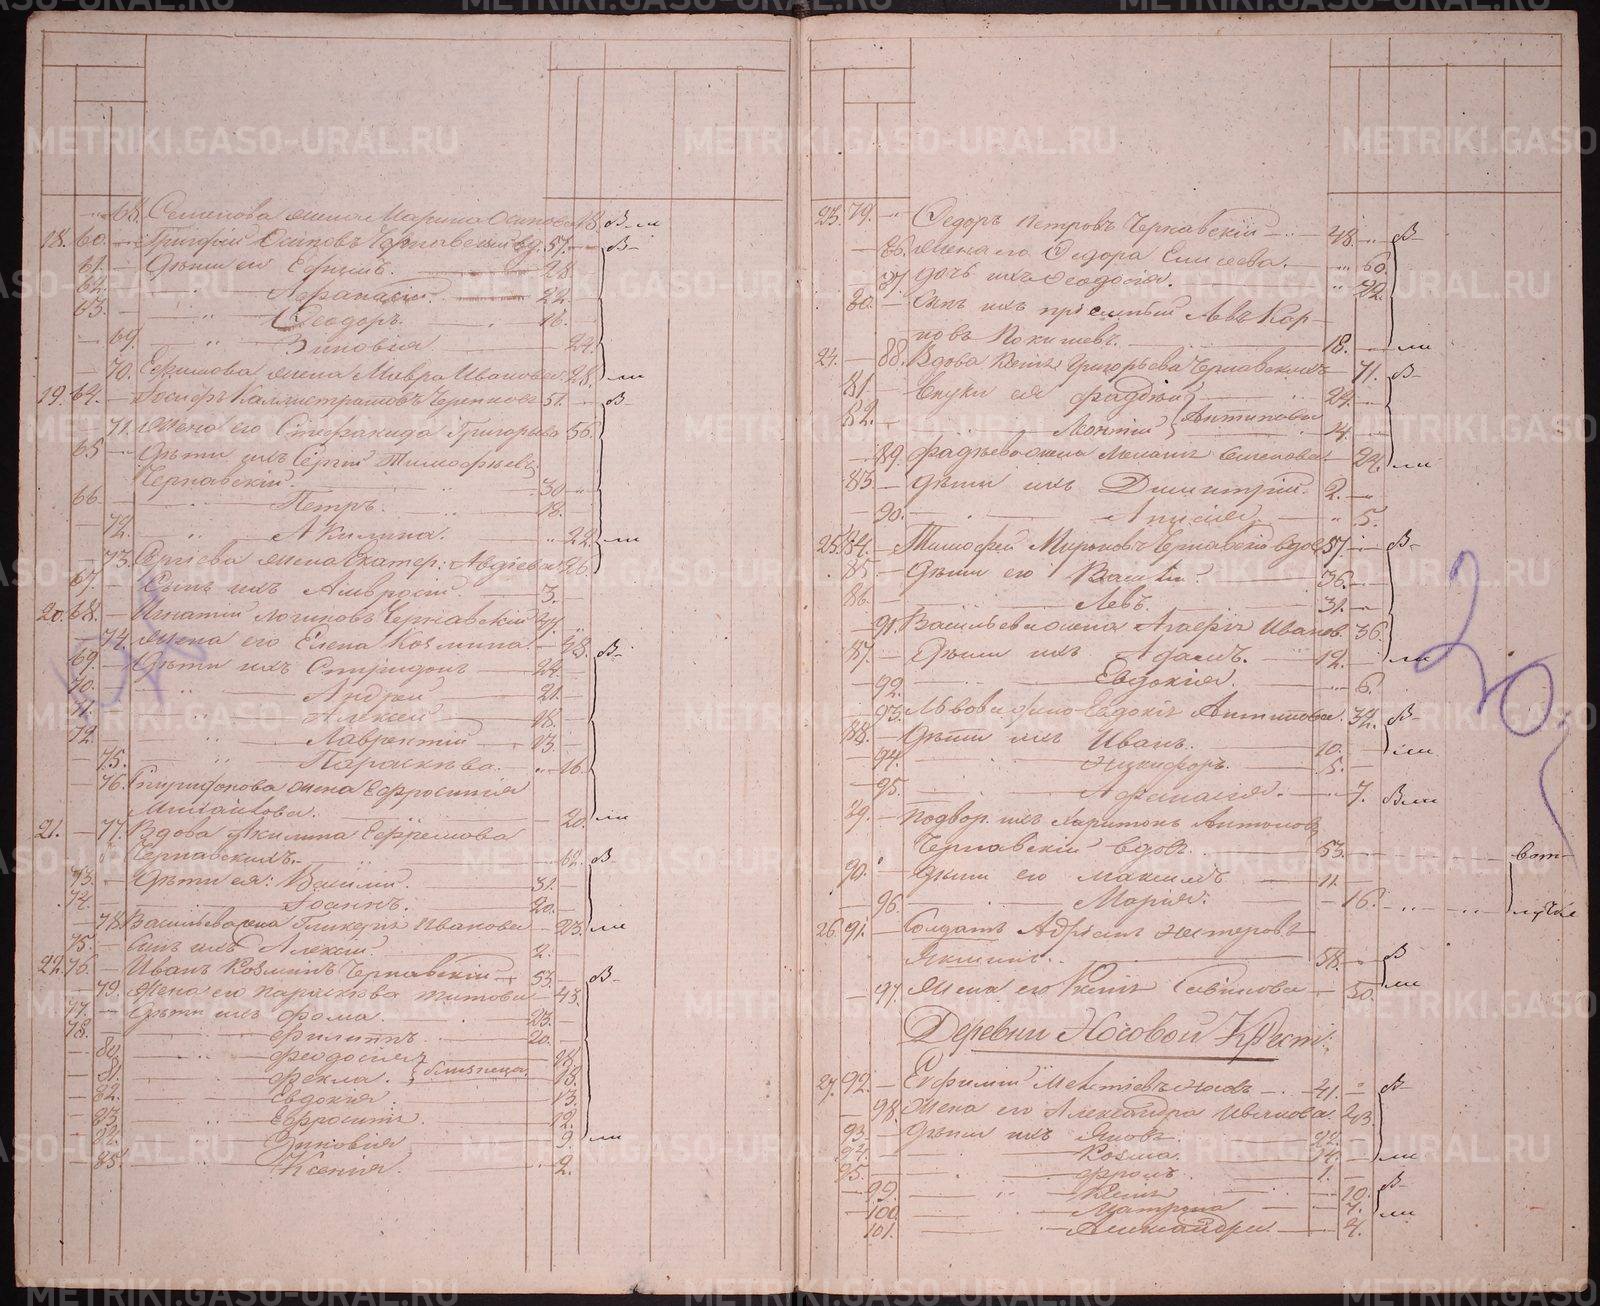 68. Семенова жена Марина Осипова 18. В ли
18. 60. Григорій Осиповъ Чернавскій вд. 57. В
61. Дѣти его Ефимъ. 28
62. Афанасій. 22.
63. Ѳеодоръ. 16.
69. Зиновія 24.
70. Ефимова жена Мавра Иванова 28. ли
19. 64. Іосифъ Каллистратовъ 51. В
71. Жена его Стефанида Григорьева 56.
65 Дѣти ихъ Сергій Тимофѣевъ
Чернавскій. 30
66. Петръ. 18.
72. Акилина. 22. ли
73. Сергіева жена Екатер: Авдіева 26.
67. Сынъ ихъ Амвросій 3.
20. 68. Игнатій Логиновъ Чернавскій
74. Жена его Елена Козмина. 48. В
69. Дѣти ихъ Спиридонъ 24.
70. Андрей 21.
71. Алексей 18.
72. Лаврентій 13.
75. Параскѣва. 16.
76. Спиридонова жена Ефросинія
Михайлова. 20. ли
21. 77. Вдова Акилина Ефремова
Чернавскихъ. 62. В
73. Дѣти ея: Василій. 31.
74. Іоаннъ. 20.
78. Васильева жена Гликерія Иванова 23. ли
75. Сынъ ихъ Алексій. 2.
22. 76. Иванъ Козминъ Чернавскій 53. В
79. Жена его Параскѣва Титова 43.
77. Дѣти ихъ Фома. 23.
78. Филиппъ. 20.
80. Феодосія 18.
81. Фекла. близнецы 18.
82. Евдокія. 13.
83. Ефросинія 12.
84. Зиновія 9. ли
85. Ксенія. 2.
23. 79. Ѳедоръ Петровъ Чернавскій 48. В
86. Жена его Ѳедора Елисеева. 60.
87. Дочь ихъ Ѳеодосія. 22.
80. Сынъ ихъ пріемный Левъ Кар-
повъ 18. ли
24. 88. Вдова Ксенія Григорьева Чернавскихъ 71. В
81. Внуки ея Фадѣй 24.
82. Леонтій Антиповы 14.
89. Фадѣева жена Меланія Семенова 24. ли
83. Дѣти ихъ Димитрій. 2.
90. Анисія 5.
25. 84. Тимофей Мироновъ Чернавскій вдов. 57. В
85. Дѣти его Василій. 36.
86. Левъ. 31.
91. Васильева жена Агаѳія Иванов. 36.
87. Дѣти ихъ Адамъ. 12. ли
92. Евдокія. 6.
93. Львова жена Евдокія Антипова. 34. В
88. Дѣти ихъ Иванъ. 10. ли
94. Никифоръ. 5.
95. Афанасія. 7. В ли
89. Подвор. ихъ Харитонъ Антоновъ
Чернавскій вдов. 53.
90. Дѣти его Максимъ 11.
96. Марія. 16.
26. 91. Солдатъ Адріанъ Нестеровъ
Якимов. 58. В
97. Жена его Ксенія Савинова 50. ли
Деревни Носовой Крест.
27. 92. Евфимій 41. В
98. Жена его Александра Иванова. 43.
93. Дѣти ихъ Яковъ. 22.
94. Козма. 14. ли
95. Фролъ 1.
99. Ксенія 10. В
100. Матрена 7. ли
101. Александра. 4.
20